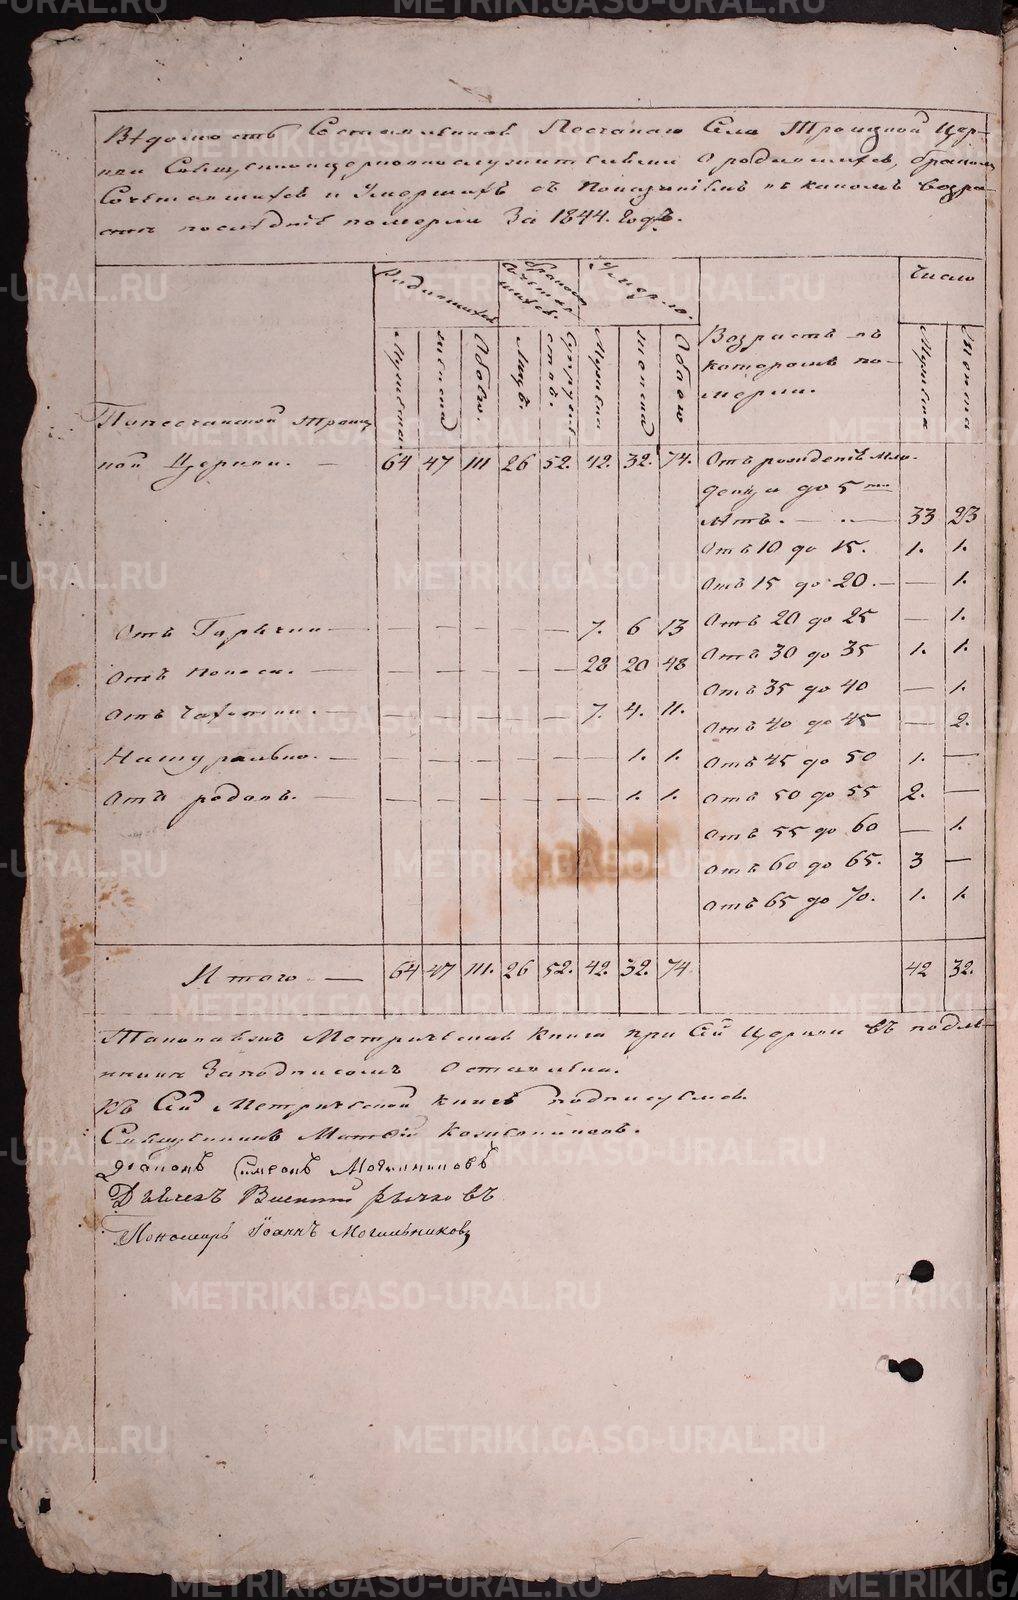 Вѣдомость Составленная Песчанаго Села Троицкой Цер-
кви Священноцерковнослужителями О родившихся, бракомъ
Сочетавшихся и Умершихъ съ Показанiемъ въ какомъ возра-
стѣ послѣднiе померли За 1844. Годъ.
Родившихся
бракосочетавшихся.
Умерло.
Число
Мужеска
женска
Обоего.
Лицъ.
Супружествъ.
Мужеска
женска
Обоего
Возрастъ въ
которомъ по-
мерли.
Мужеска
Женска
По песчанской Троиц
кой Церкви. — 64 47 111 26 52. 42. 32. 74. Отъ рожденiя мла-
денца до 5ти
лѣтъ. — — 33 23
Отъ 10 до 15. 1. 1.
Отъ 15 до 20. — — 1.
Отъ Горячки — — — — — — 7. 6 13 Отъ 20 до 25 — 1.
Отъ поноса. — — — — — — 28 20 48 Отъ 30 до 35 1. 1.
Отъ 35 до 40 — 1.
Отъ Чахотки. — — — — — — 7. 4. 11. Отъ 40 до 45 — 2.
Натурально. — — — — — — — 1. 1. Отъ 45 до 50 1. —
Отъ родовъ. — — — — — — — 1. 1. Отъ 50 до 55 2. —
Отъ 55 до 60 — 1.
Отъ 60 до 65. 3 —
Отъ 65 до 70. 1. 1.
Итого — 64 47 111. 26 52. 42. 32. 74. 42 32.
Таковаяжъ Метрическая Книга при Сей Церкви въ подли-
нникѣ Заподписомъ Оставлена.
Къ Сей Метрической книгѣ подписуемся
Священникъ Матфiй
Дiаконъ Симеонъ
Дьячекъ Рычковъ
Пономарь Iоаннъ Могильниковъ
METRIKI.GASO-URAL.RU